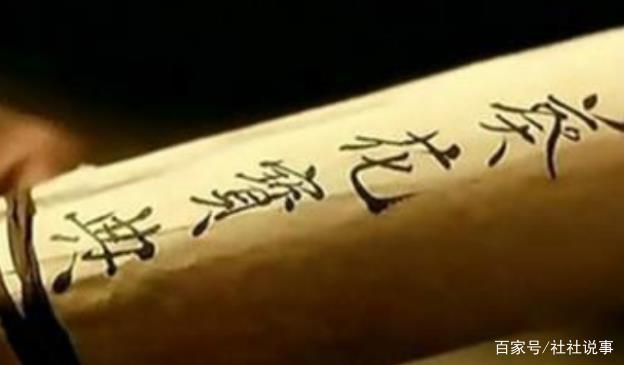 葵花寶典
百家号/社社说事